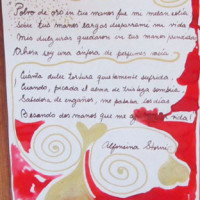 Polvo de oro en tus manos fue mi melancolía
Sobre tus manos largas desparramé mi vida
Mis dulzuras quedaron en tus manos prendidas
Ahora soy una ánfora de perfumes vacía
Cuánta dulce tortura quietamente sufrida,
Cuando, picada el alma de tristeza sombría,
Sabedora de engaños, me pasaba los días
Besando dos manos que me a vida!
Alfonsina Storni